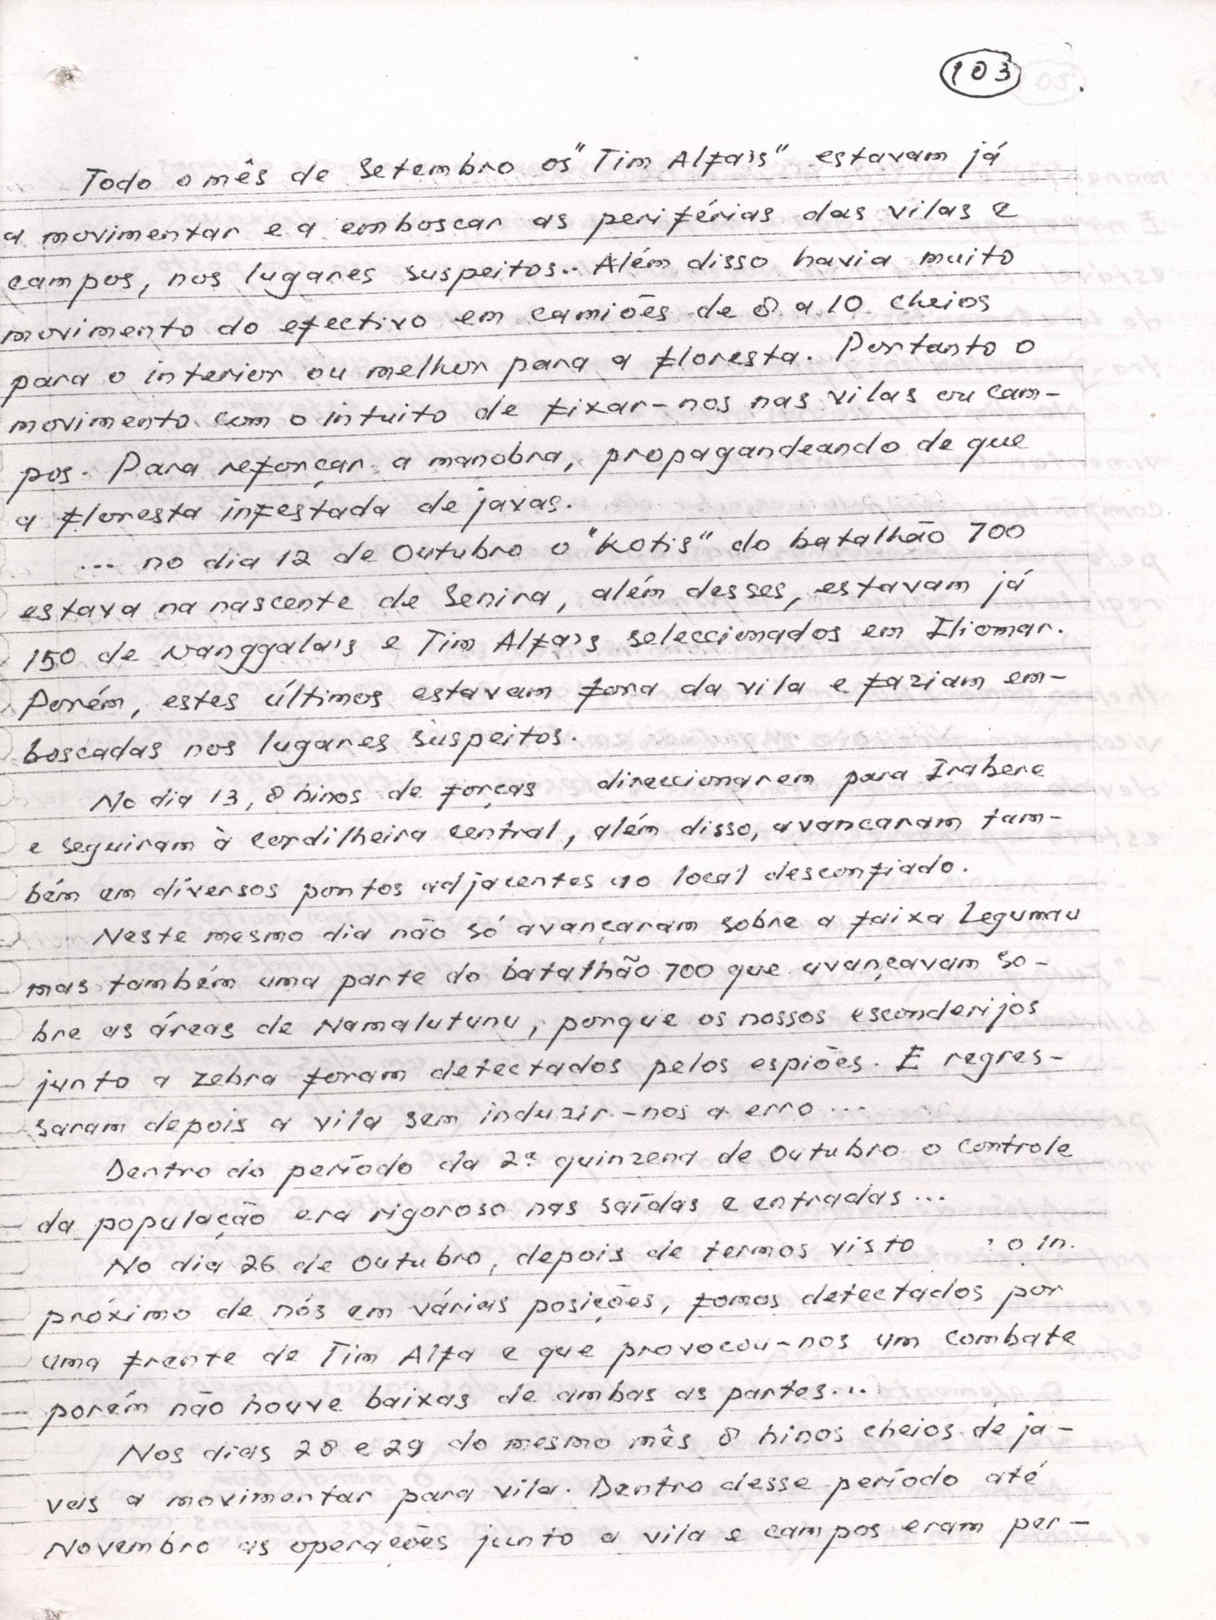 103
Todo o mês de Setembro os "Tim Alfa's" estavam já
a movimentar e a emboscar as periférias das vilas e
campos, nos lugares suspeitos.. Além disso havia muito
movimento do efectivo em camiões de 8 a 10 cheios
para o interior ou melhor para a floresta. Portanto o
movimento com o intuito de fixar-nos nas vilas ou cam-
pos. Para reforçar a manobra, propagandeando de que
a floresta infestada de javas.
... no dia 12 de Outubro o "Kotis" do batalhão 700
estava na nascente de Senira, além desses, estavam já
150 de Nanggala's e Tim Alfa's seleccionados em Iliomar.
Porém, estes últimos estavam fora da vila e faziam em-
boscadas nos lugares suspeitos.
No dia 13, 8 hinos de forças direccionarem para Irabere
e seguiram à cordilheira central, além disso, avancaram tam-
bém em diversos pontos adjacentes ao local desconfiado.
Neste mesmo dia não só avançaram sobre a faixa Legumau
mas também uma parte do batalhão 700 que avançavam so-
bre as áreas de Namalutunu, porque os nossos esconderijos
junto a zebra foram detectados pelos espiões. E regres-
saram depois a vila sem induzir-nos a erro ...
Dentro do período da 2ª quinzena de Outubro o controle
da população era rigoroso nas saídas e entradas ...
No dia 26 de Outubro, depois de termos visto o in.
próximo de nós em várias posições, fomos detectados por
uma frente de Tim Alfa e que provocou-nos um combate
porém não houve baixas de ambas as partes...
Nos dias 28 e 29 do mesmo mês 8 hinos cheios de ja-
vas a movimentar para vila. Dentro desse período até
Novembro as operações junto a vila e campos eram per-